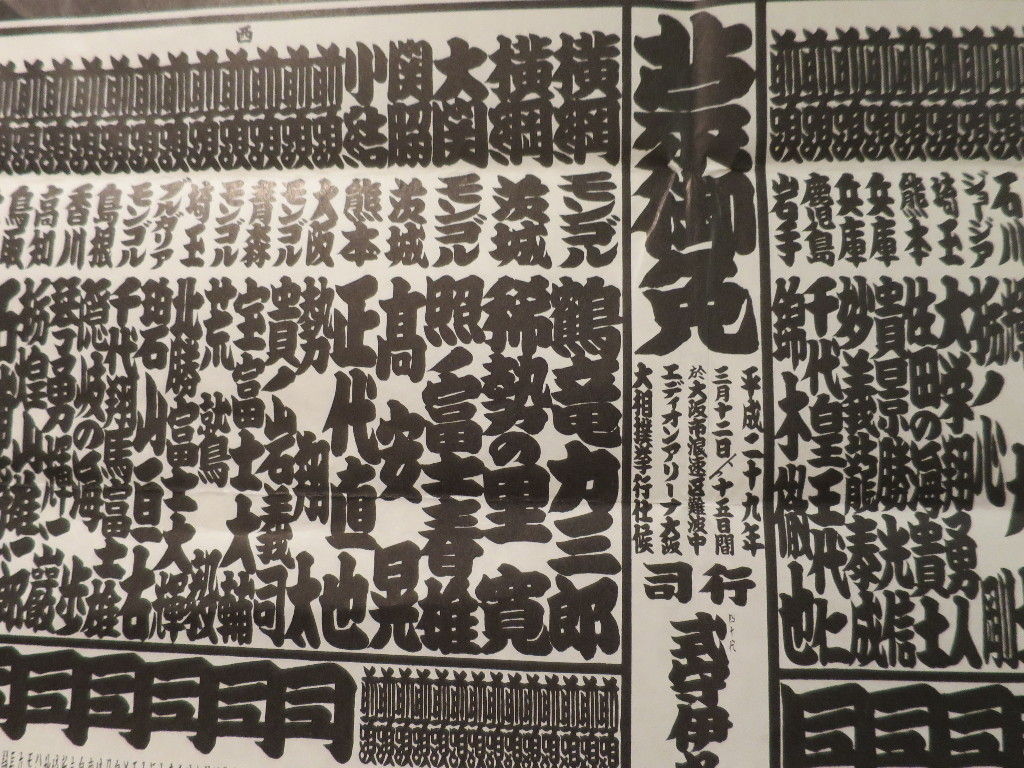 前頭 石川
前頭 ジョージア 栃ノ心 剛
前頭 埼玉 大栄翔 勇人
前頭 熊本 佐田の海 貴士
前頭 兵庫 貴景勝 光信
前頭 兵庫 妙義龍 泰成
前頭 鹿児島 千代皇 王代仁
前頭 岩手 錦木 徹也
蒙御免
平成二十九年
三月十二日ヨリ十五日間
於大阪市浪速区難波中
エディオンアリーナ大阪
大相撲挙行仕候
行司
四十代
式守伊
西
横綱 モンゴル 鶴竜 力三郎
横綱 茨城 稀勢の里 寛
大関 モンゴル 照ノ富士 春雄
関脇 茨城 髙安 晃
小結 熊本 正代 直也
前頭 大阪 勢 翔太
前頭 モンゴル 貴ノ岩 義司
前頭 青森 宝富士 大輔
前頭 モンゴル 荒鷲 毅
前頭 埼玉 北勝富士 大輝
前頭 ブルガリア 碧山 亘右
前頭 モンゴル 千代翔馬 富士雄
前頭 島根 隠岐の海 歩
前頭 香川 琴勇輝 一巖
前頭 高知 栃煌山 雄一郎
前頭 鳥取
同 同 同 同 同
同 同